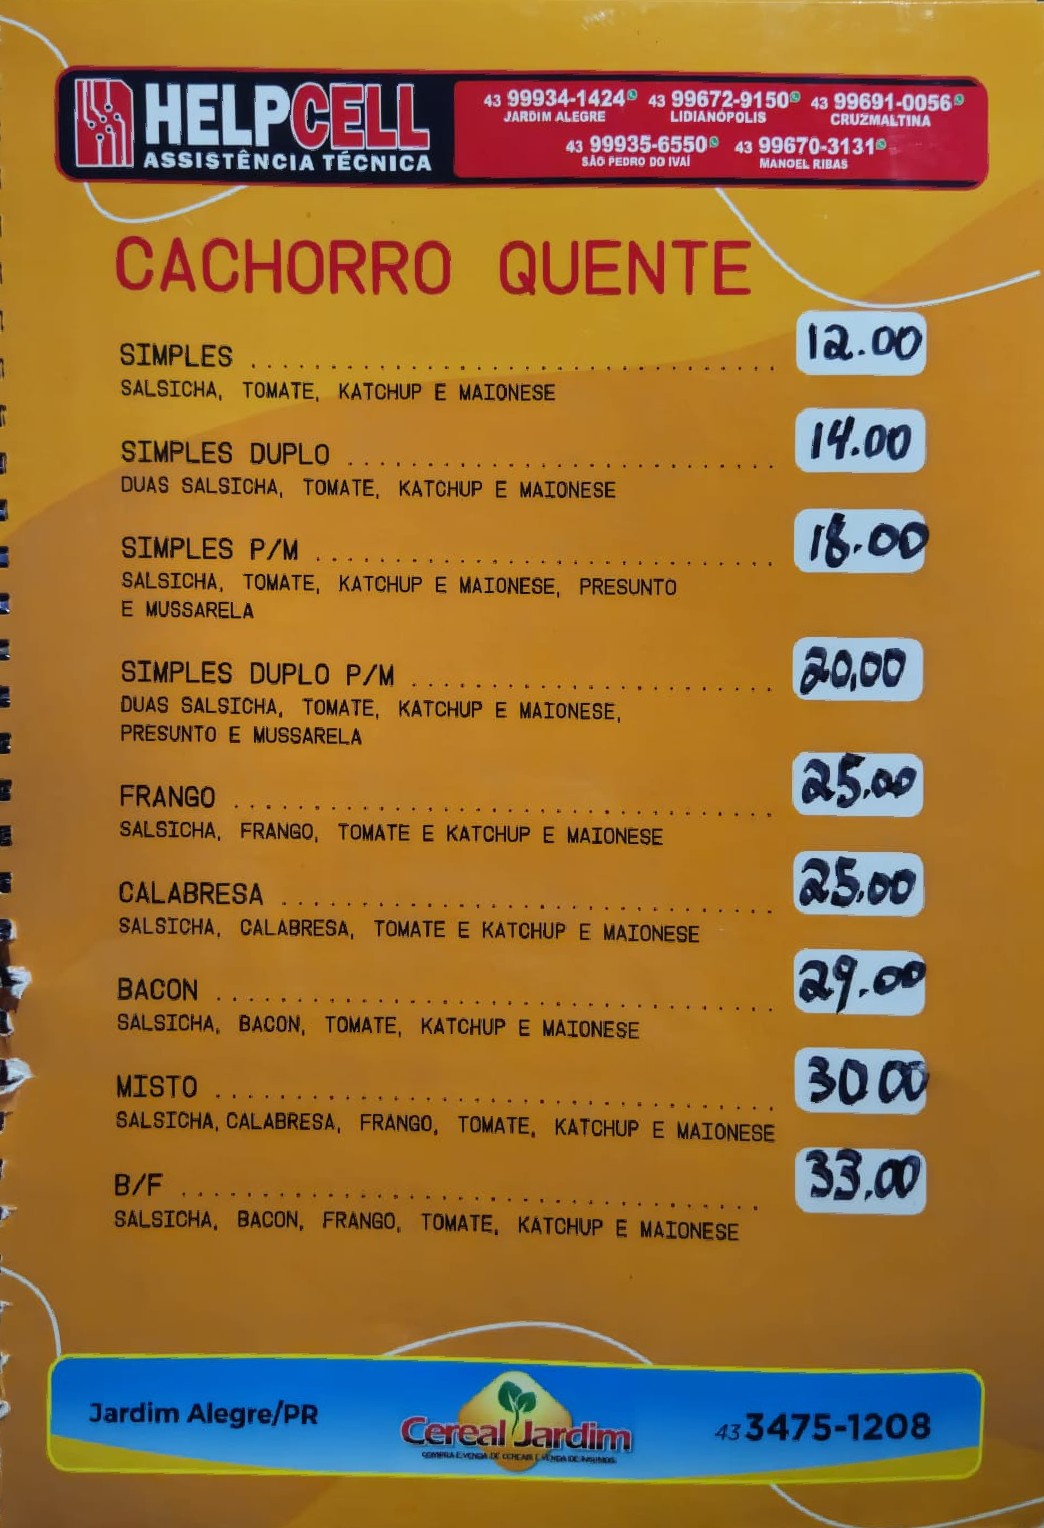 HELPCELL
ASSISTÊNCIA TÉCNICA
43 99934-1424 43 99672-9150 43 99691-0056
JARDIM ALEGRE LIDIANÓPOLIS CRUZMALTINA
43 99935-6550 43 99670-3131
SÃO PEDRO DO IVAÍ MANOEL RIBAS
CACHORRO QUENTE
SIMPLES 12.00
SALSICHA, TOMATE, KATCHUP E MAIONESE
SIMPLES DUPLO 14.00
DUAS SALSICHA, TOMATE, KATCHUP E MAIONESE
SIMPLES P/M 18.00
SALSICHA, TOMATE, KATCHUP E MAIONESE, PRESUNTO
E MUSSARELA
SIMPLES DUPLO P/M 20,00
DUAS SALSICHA, TOMATE, KATCHUP E MAIONESE,
PRESUNTO E MUSSARELA
FRANGO 25.00
SALSICHA, FRANGO, TOMATE E KATCHUP E MAIONESE
CALABRESA 25.00
SALSICHA, CALABRESA, TOMATE E KATCHUP E MAIONESE
BACON 29.00
SALSICHA, BACON, TOMATE, KATCHUP E MAIONESE
MISTO 30 00
SALSICHA, CALABRESA, FRANGO, TOMATE, KATCHUP E MAIONESE
B/F 33.00
SALSICHA, BACON, FRANGO, TOMATE, KATCHUP E MAIONESE
Jardim Alegre/PR Cereal Jardim 43 3475-1208
COMPRA E VENDA DE CEREAIS E VENDA DE INSUMOS